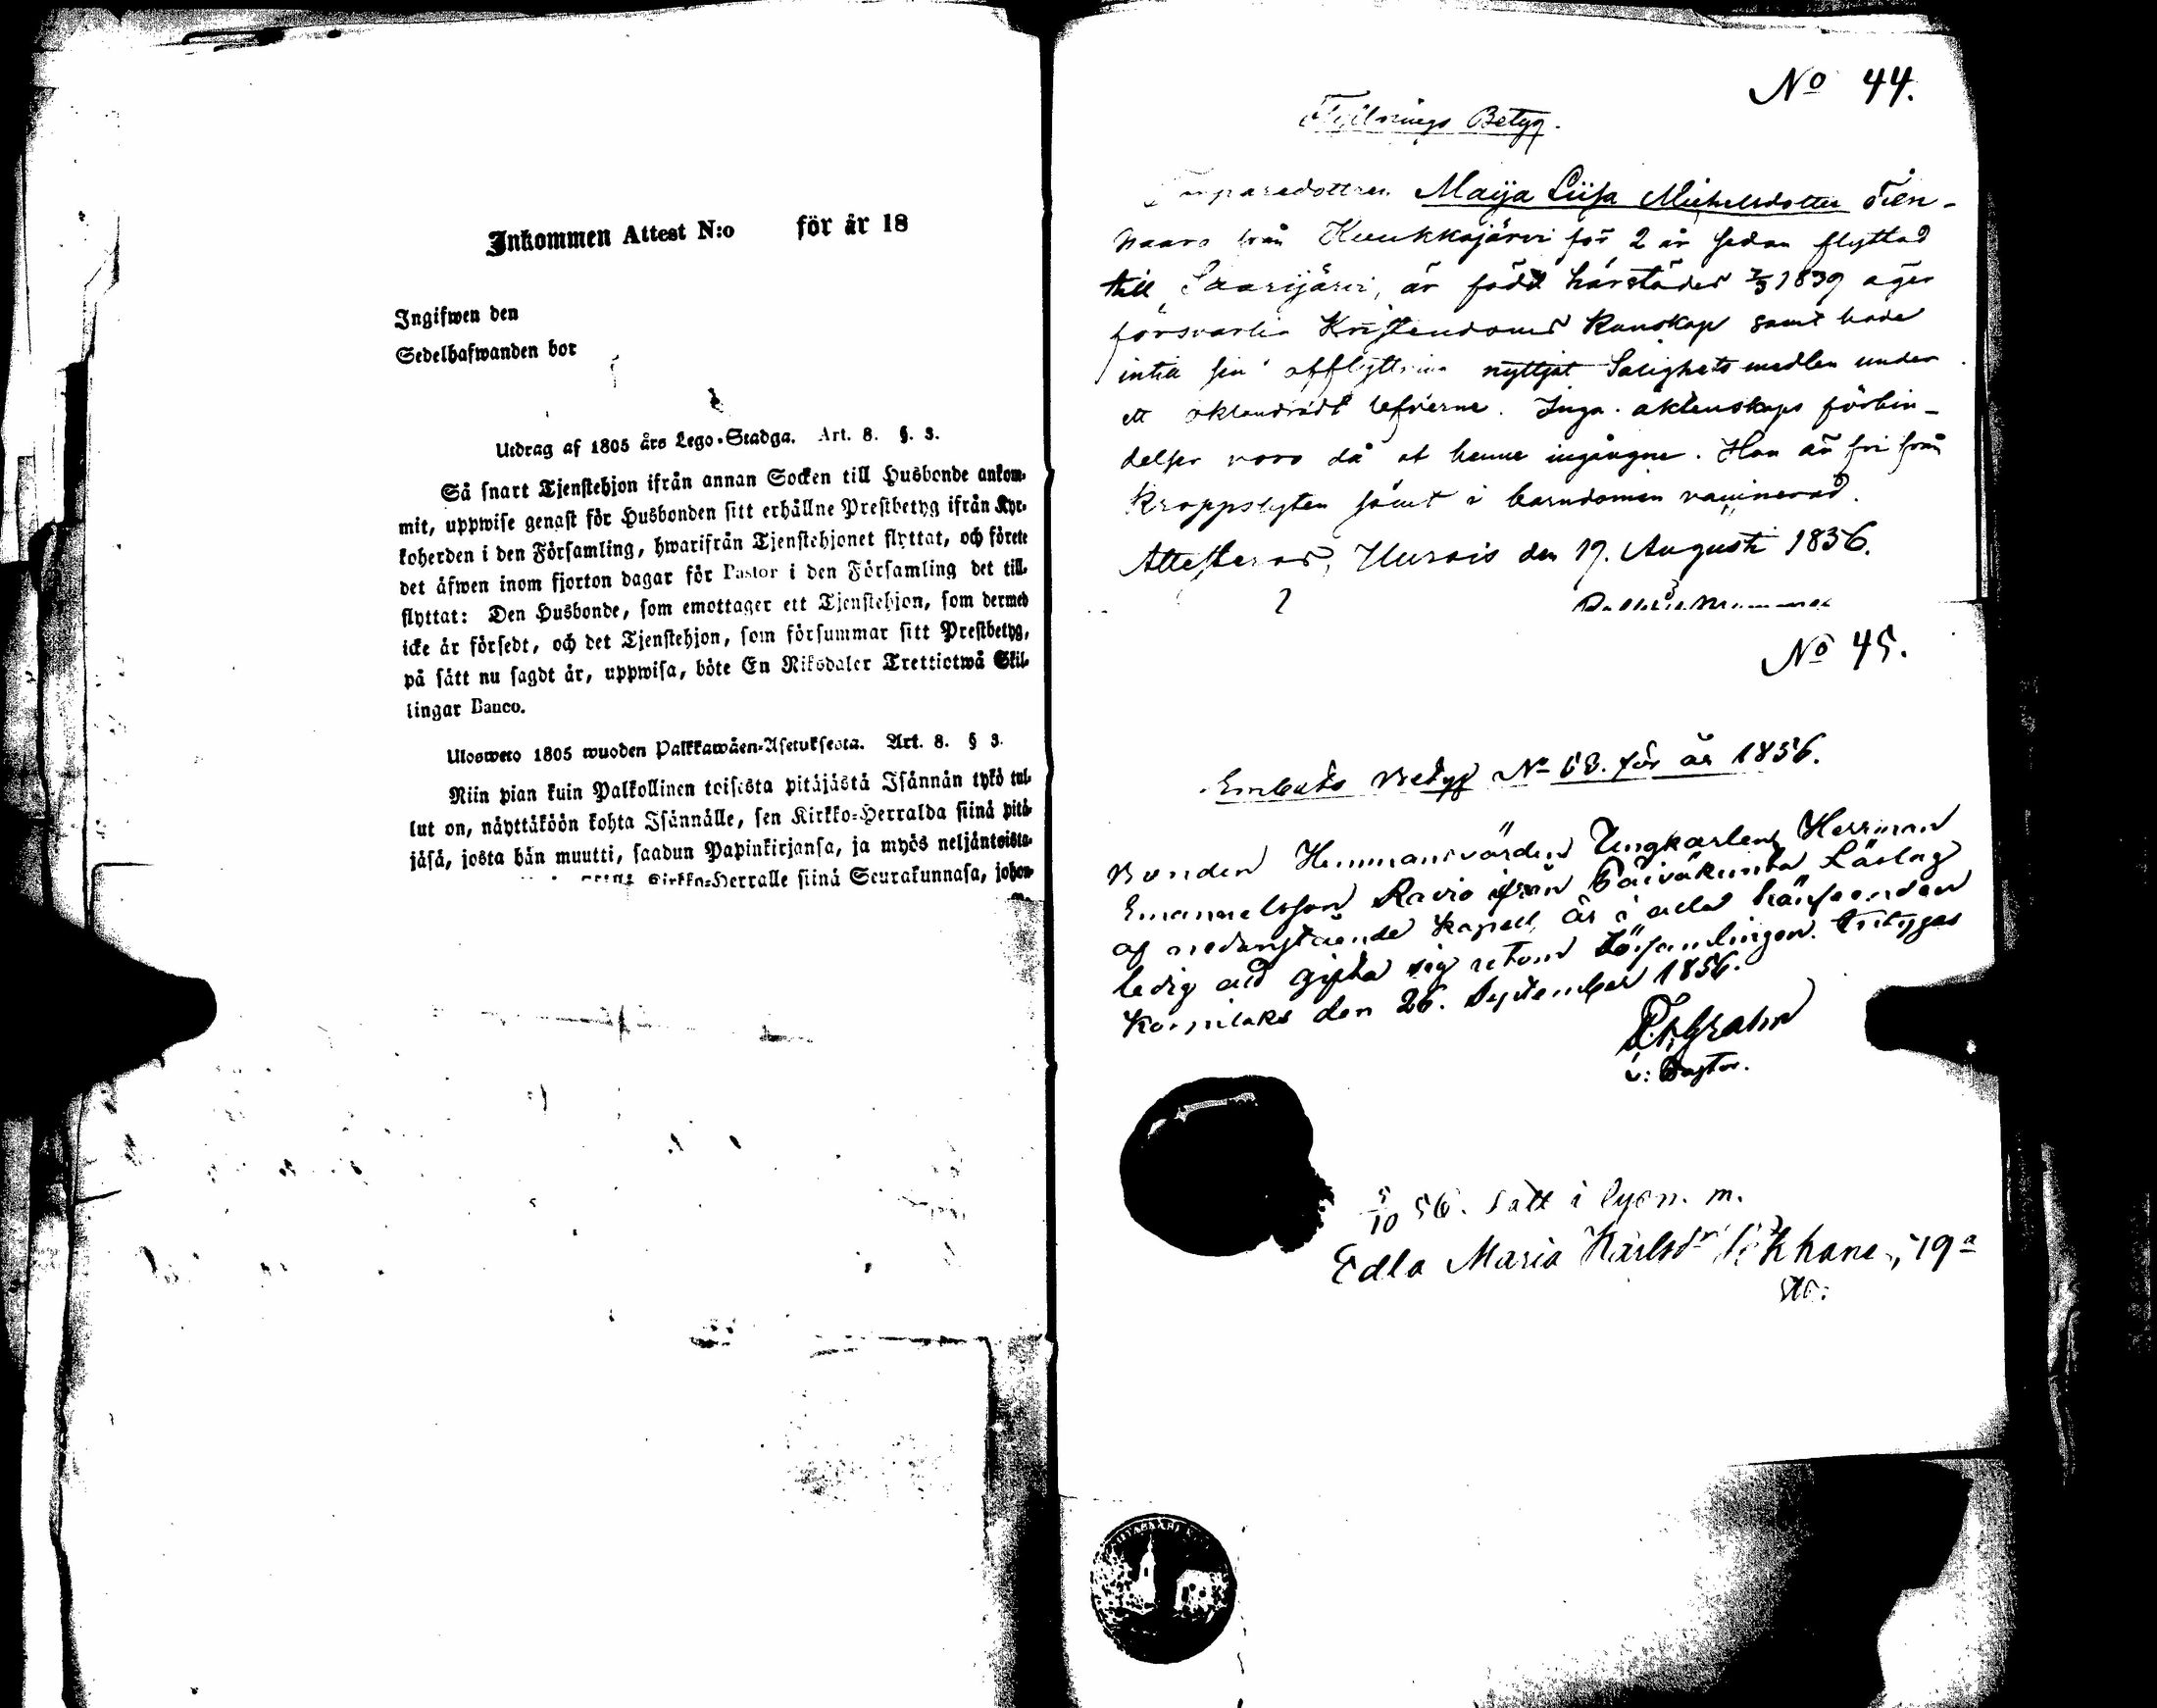 Inkommen Attest N:o för år 18
Ingifwen den
Sedelhafwanden bor
Utdrag af 1805 års Lego-Stadga. Art. 8. §. 3.
Så snart Tjenstehjon ifrån annan Socken till Husbonde ankom-
mit, uppwise genast för Husbonden sitt erhållne Prestbetyg ifrån Kyr-
koherden i den Församling, hwarifrån Tjenstehjonet flyttat, och förete
det äfwen inom fjorton dagar för Pastor i den Församling det till-
flyttat: Den Husbonde, som emottager ett Tjenstehjon, som dermed
icke är försedt, och det Tjenstehjon, som försummar sitt Prestbetyg,
på sätt nu sagdt är, uppwisa, böte En Riksdaler Trettiotwå Skil-
lingar Banco.
Ulosweto 1805 wuoden Palkkawäen-Asetuksesta. Art. 8. § 3.
Niin pian kuin Palkollinen toisesta pitäjästä Isännän tykö tul-
lut on, näyttäköön kohta Isännälle, sen Kirkko-Herralda siinä pitä-
jäsä, josta hän muutti, saadun Papinkirjansa, ja myös neljäntoista-
Kirkko-Herralle siinä Seurakunnasa, johon-
No 44.
Flyttnings Betyg.
Maija Liisa Michelsdotter
från Kuukkajärvi för 2 år sedan flyttad
till Saarijärvi, är född härstädes 1839 äger
försvarlig Kristendoms Kunskap samt hade
intill sin afflyttning nyttjat Salighets medlen under
ett oklandradt lefverne. Inga äktenskaps förbin-
delser voro då af henne ingångne. Hon är fri från
kroppslyten samt i barndomen vaccinerad.
Attesteras, den 19. Augusti 1856.
No 45.
Embets Betyg No 68. för år 1856.
Bonden Hemmansvärden Ungkarlen Herrman
Emanuelsson Ravio ifrån Päiväkunta Läslag
af nedanstående Kapell, är i alla hänseenden
ledig att gifta sig utom Församlingen. betygas
den 26. September 1856.
Grahn
v: Pastor.
5/10 56. Satt i lysn. m.
Edla Maria Karlsdr 19